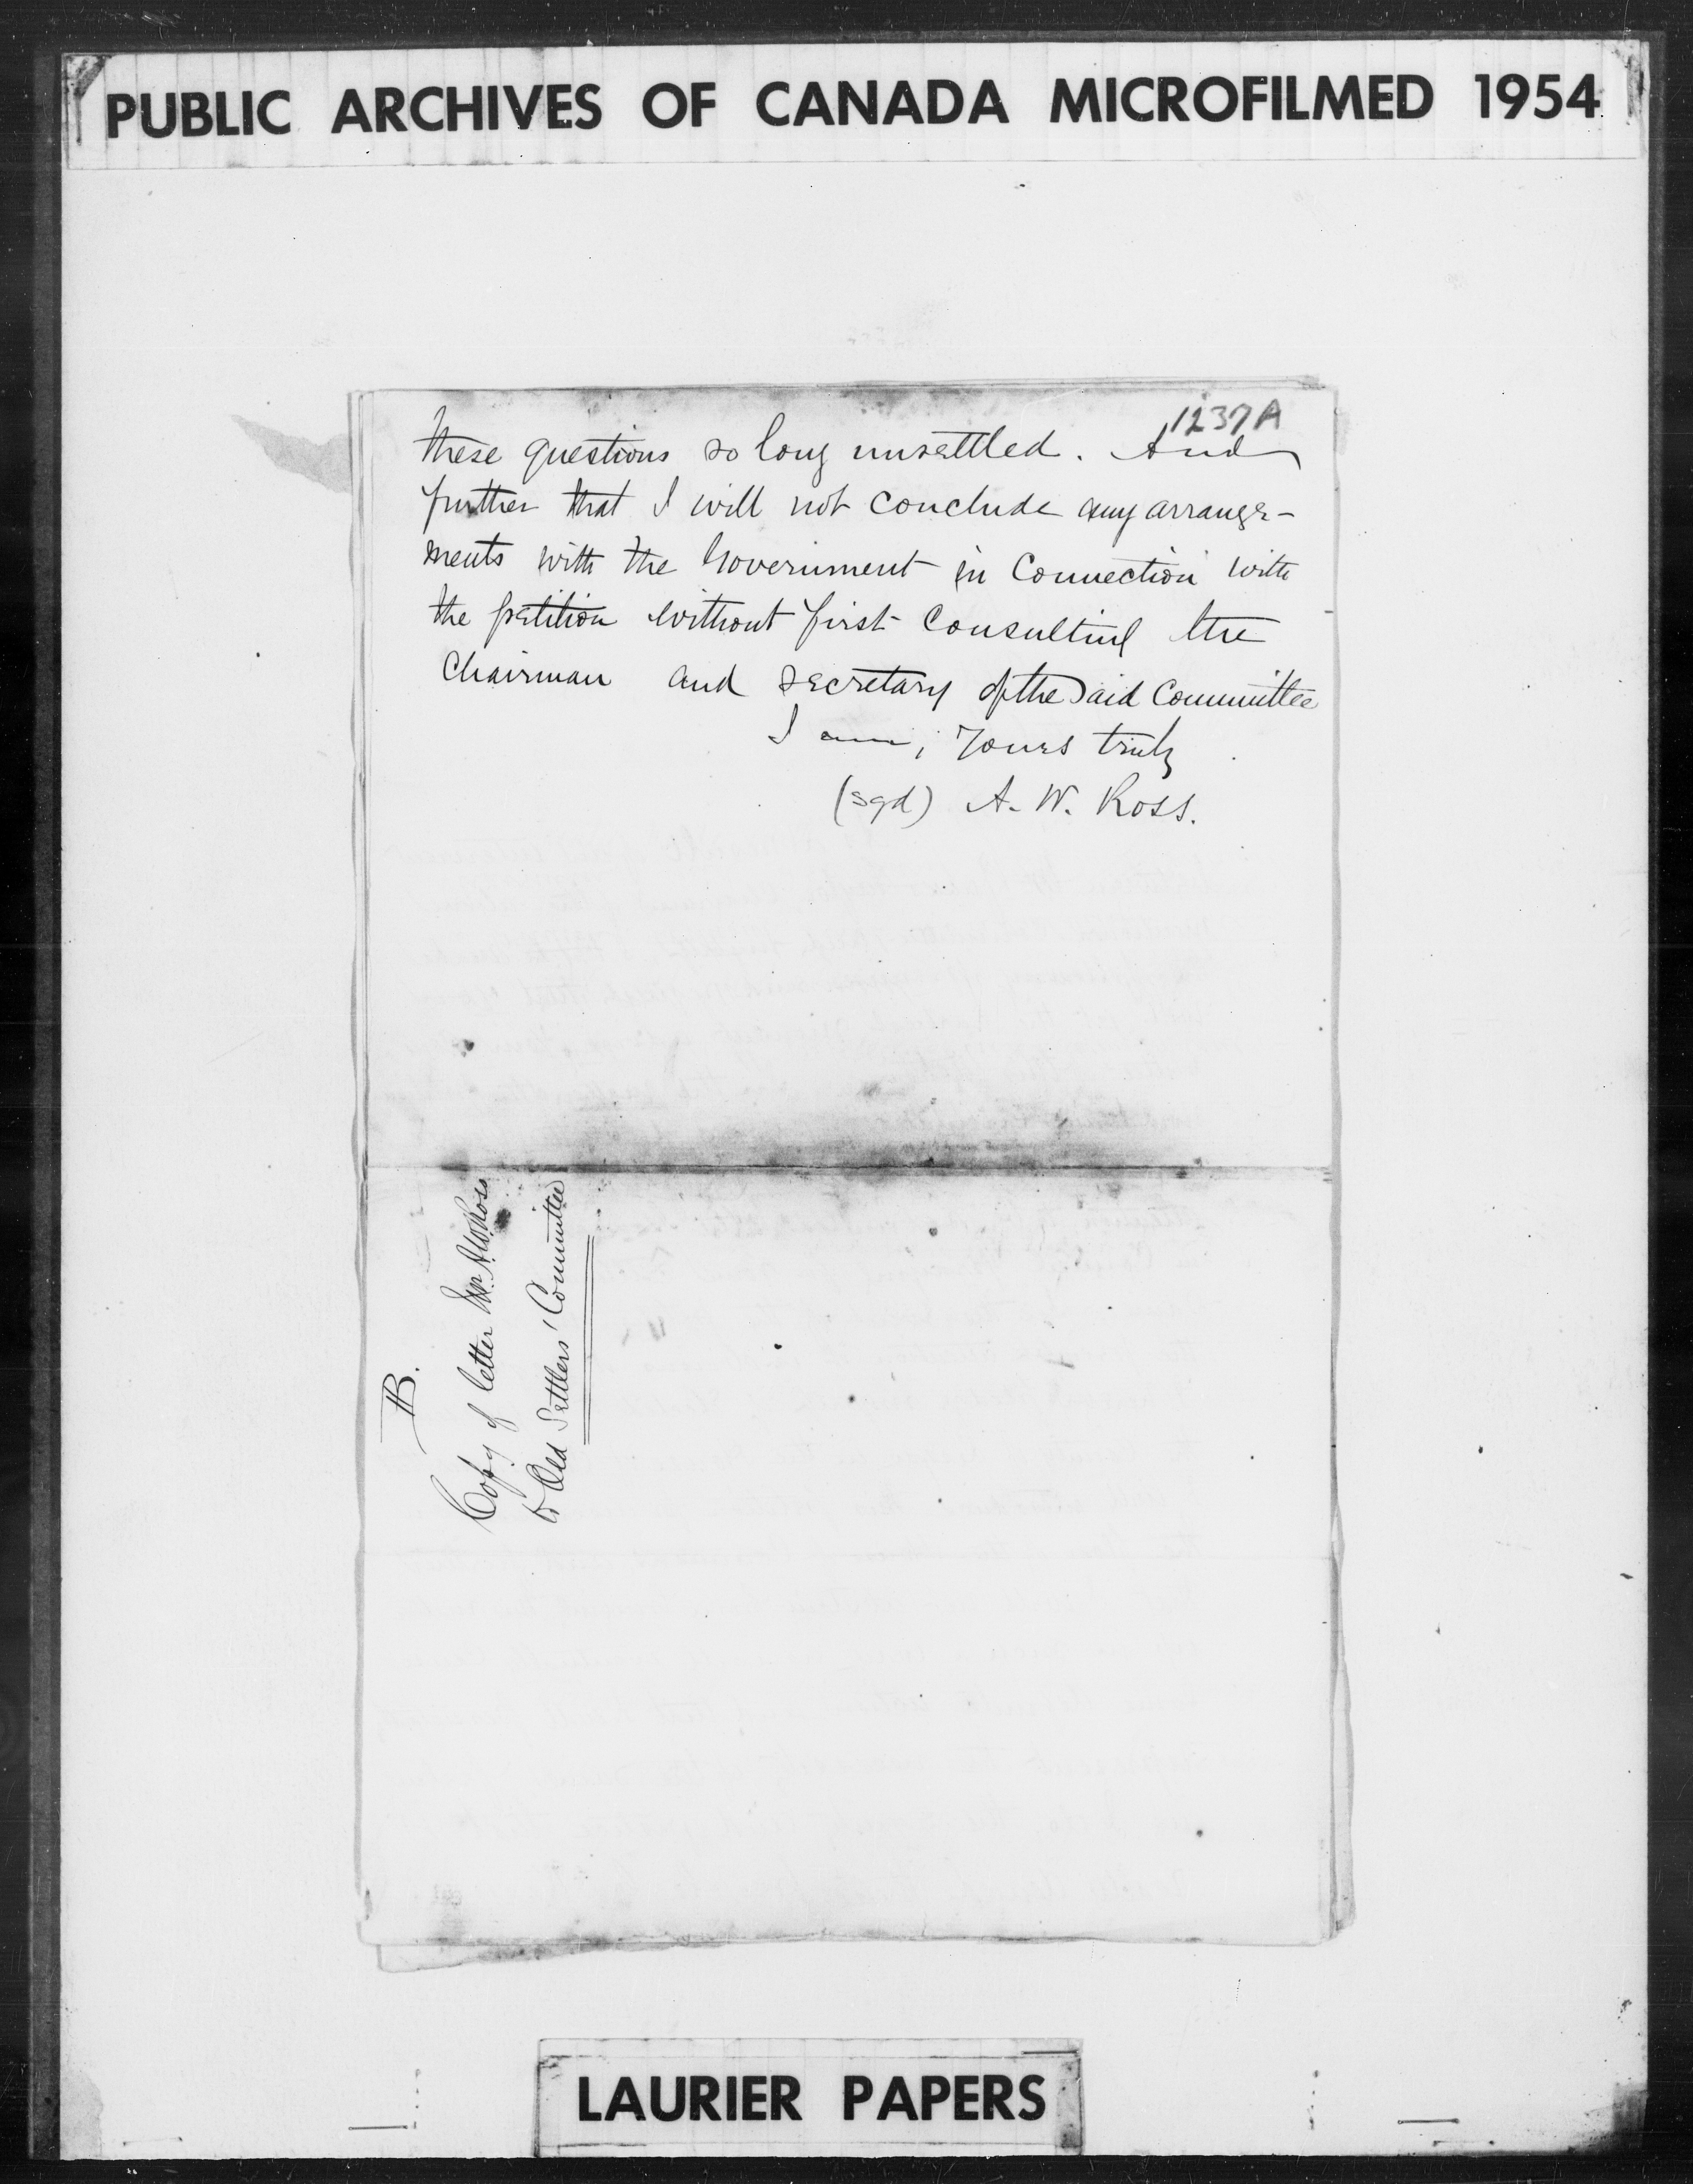 PUBLIC ARCHIVES OF CANADA MICROFILMED 1954
1237A
these questions so long unsettled. And
further that I will not conclude any arrange-
ments with the Government in connection with
the petition without first consulting the
Chairman and Secretary of the said Committee
I am, Yours truly
(sgd) A. W. Ross.
B.
Copy of letter Mr. A.W. Ross
to Old Settlers' Committee
LAURIER PAPERS